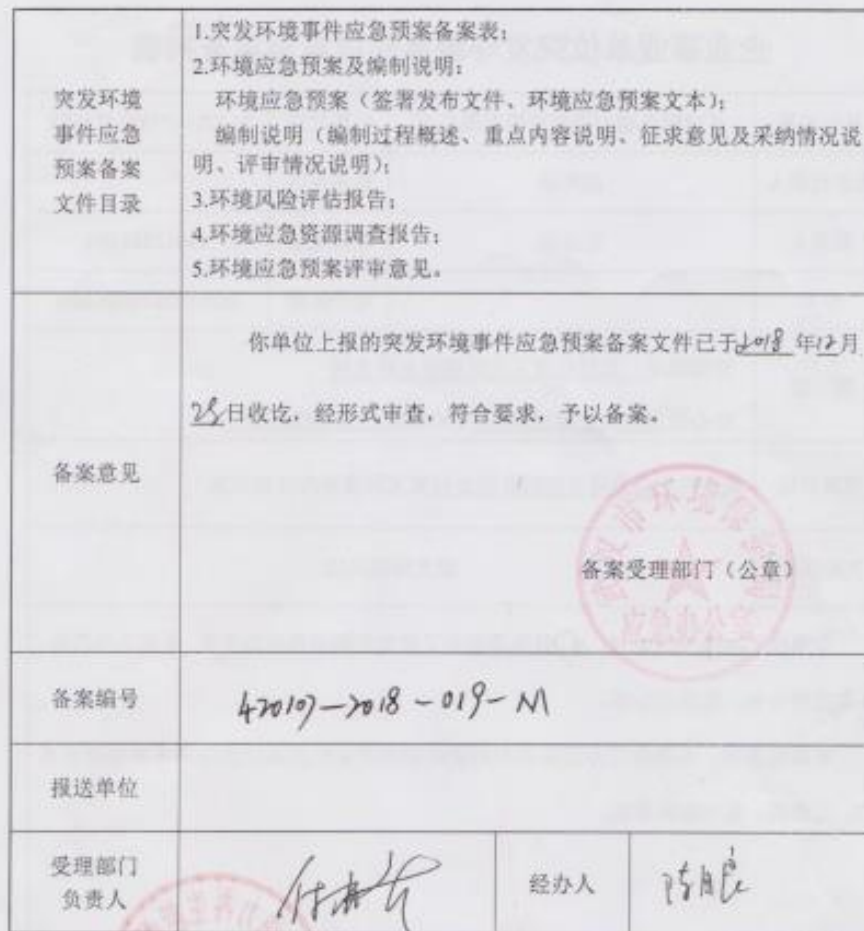 突发环境
事件应急
预案备案
文件目录
1.突发环境事件应急预案备案表;
2.环境应急预案及编制说明:
环境应急预案（签署发布文件、环境应急预案文本）;
编制说明（编制过程概述、重点内容说明、征求意见及采纳情况说
明、评审情况说明）;
3.环境风险评估报告;
4.环境应急资源调查报告;
5.环境应急预案评审意见。
备案意见
你单位上报的突发环境事件应急预案备案文件已于2018年12月
日收讫，经形式审查，符合要求，予以备案。
武汉市环境保护局
应急办公室
备案受理部门（公章）
备案编号
420107-2018-019-M
报送单位
受理部门
负责人
经办人